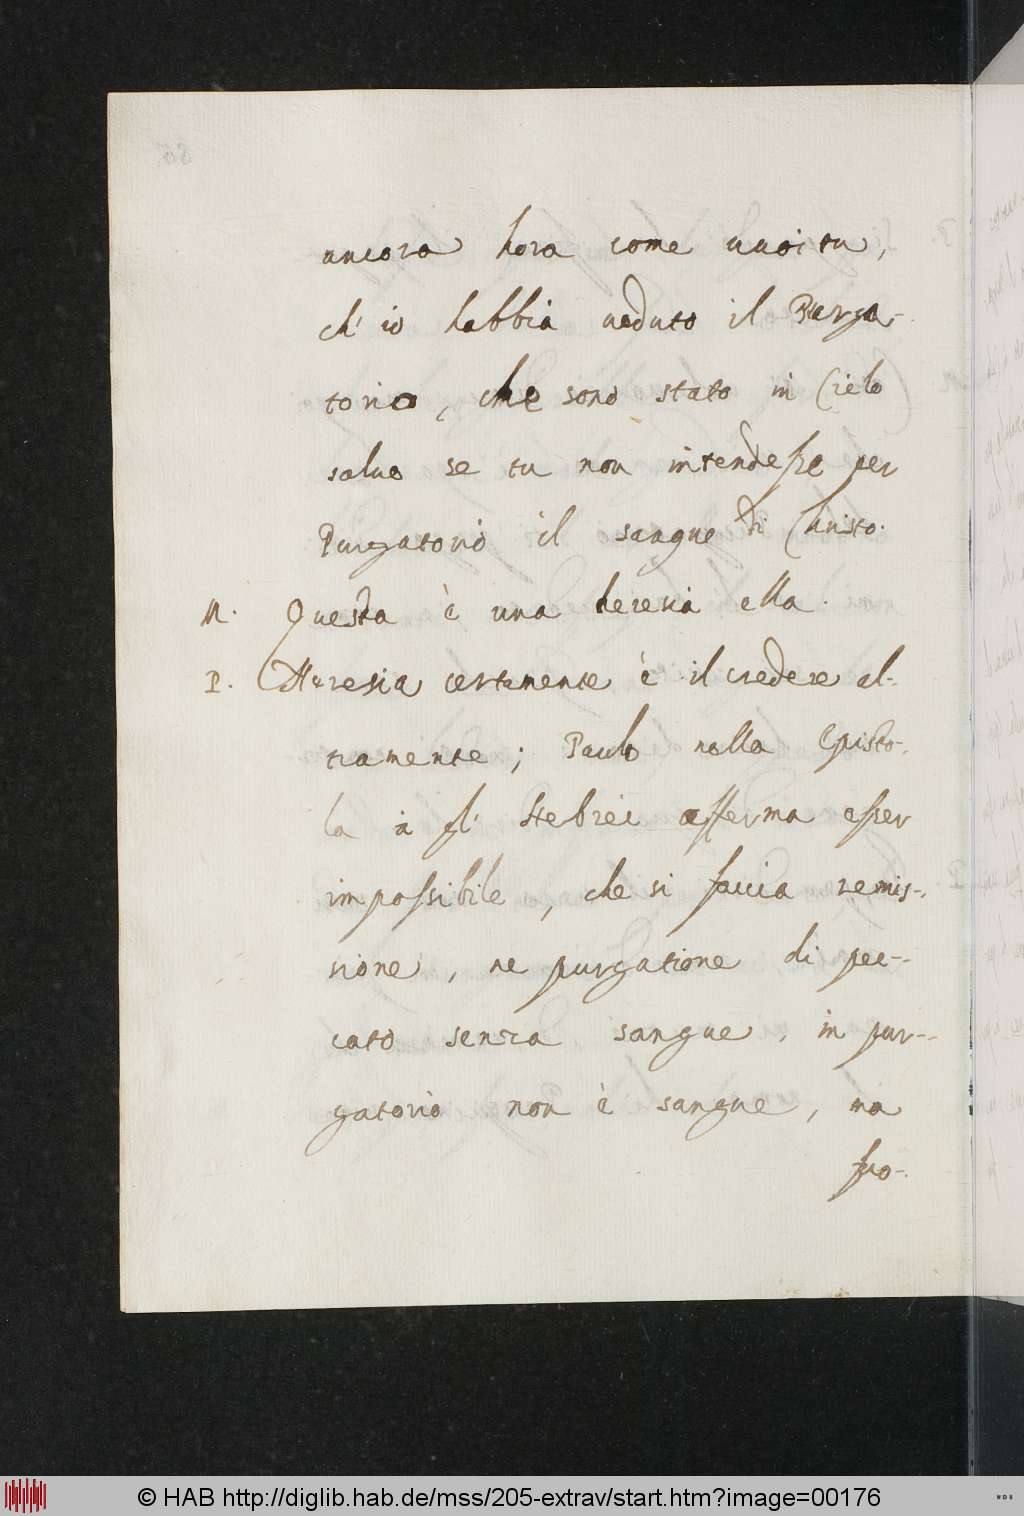 ancora hora come vuoi tu,
ch' io habbia veduto il Purga-
torio, che sono stato in Cielo
salvo se tu non intendesse per
Purgatorio il sangue di Christo.
M. Questa è una heresia ella.
P. Heresia certamente è il credere al-
tramente; Paulo nella Episto-
la à gl' Hebrei afferma esser
impossibile, che si faccia remis-
sione, ne purgatione di pec-
cato senza sangue, in pur-
gatorio non è sangue, ma
fuo-
© HAB http://diglib.hab.de/mss/205-extrav/start.htm?image=00176